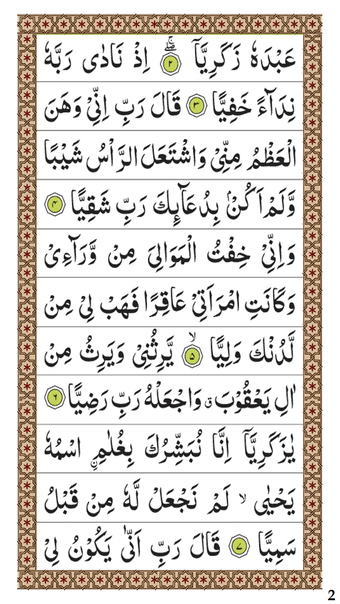 عَبْدَهٗ زَكَرِيَّاۖۚ ۝٢ اِذْ نَادٰى رَبَّهٗ
نِدَآءً خَفِيًّا ۝٣ قَالَ رَبِّ اِنِّيْ وَهَنَ
الْعَظْمُ مِنِّيْ وَاشْتَعَلَ الرَّاْسُ شَيْبًا
وَّلَمْ اَكُنْۢ بِدُعَآىِٕكَ رَبِّ شَقِيًّا ۝٤
وَاِنِّيْ خِفْتُ الْمَوَالِيَ مِنْ وَّرَآءِيْ
وَكَانَتِ امْرَاَتِيْ عَاقِرًا فَهَبْ لِيْ مِنْ
لَّدُنْكَ وَلِيًّا ۙ ۝٥ يَّرِثُنِيْ وَيَرِثُ مِنْ
اٰلِ يَعْقُوْبَ ۗ وَاجْعَلْهُ رَبِّ رَضِيًّا ۝٦
يٰزَكَرِيَّآ اِنَّا نُبَشِّرُكَ بِغُلٰمِ ۟اسْمُهٗ
يَحْيٰى ۙ لَمْ نَجْعَلْ لَّهٗ مِنْ قَبْلُ
سَمِيًّا ۝٧ قَالَ رَبِّ اَنّٰى يَكُوْنُ لِيْ
2